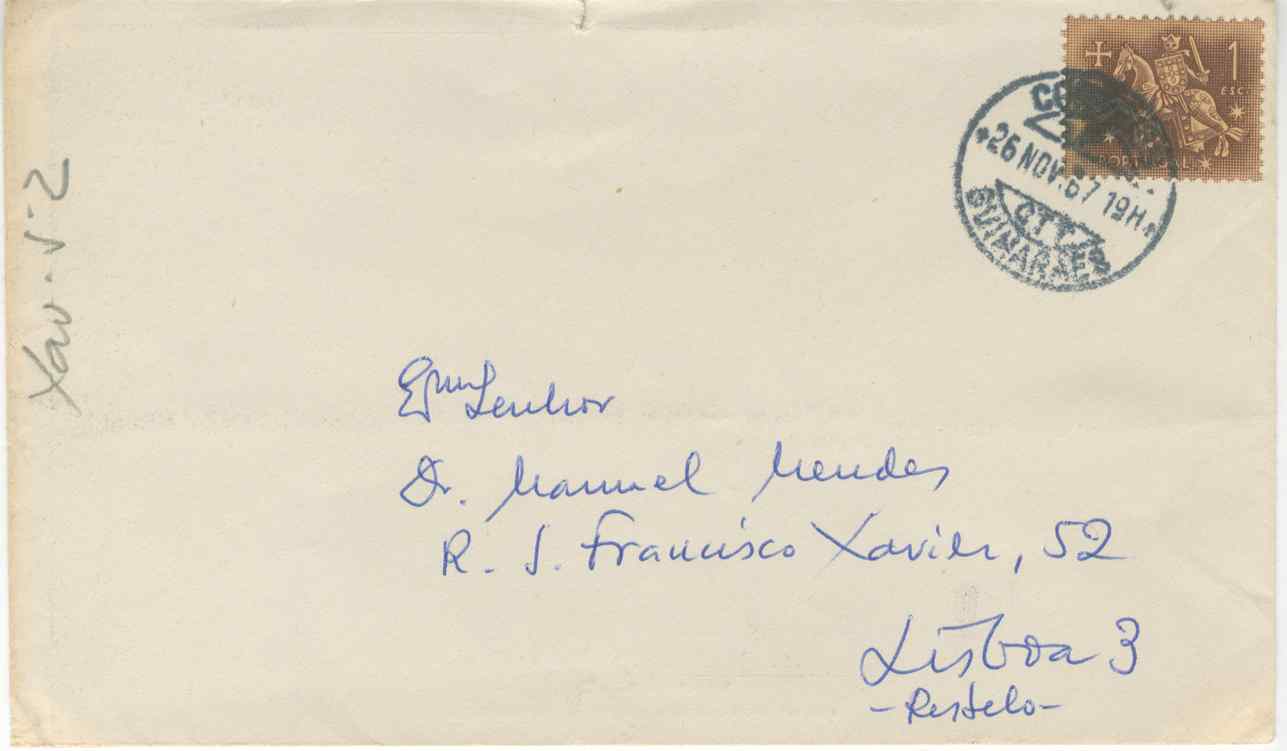 1
ESC.
PORTUGAL
26 NOV. 67 19H
CTT
GUIMARAES
Exmº Senhor
Dr. Manuel Mendes
R. S. Francisco Xavier, 52
Lisboa 3
- Restelo -
Xav. V-2